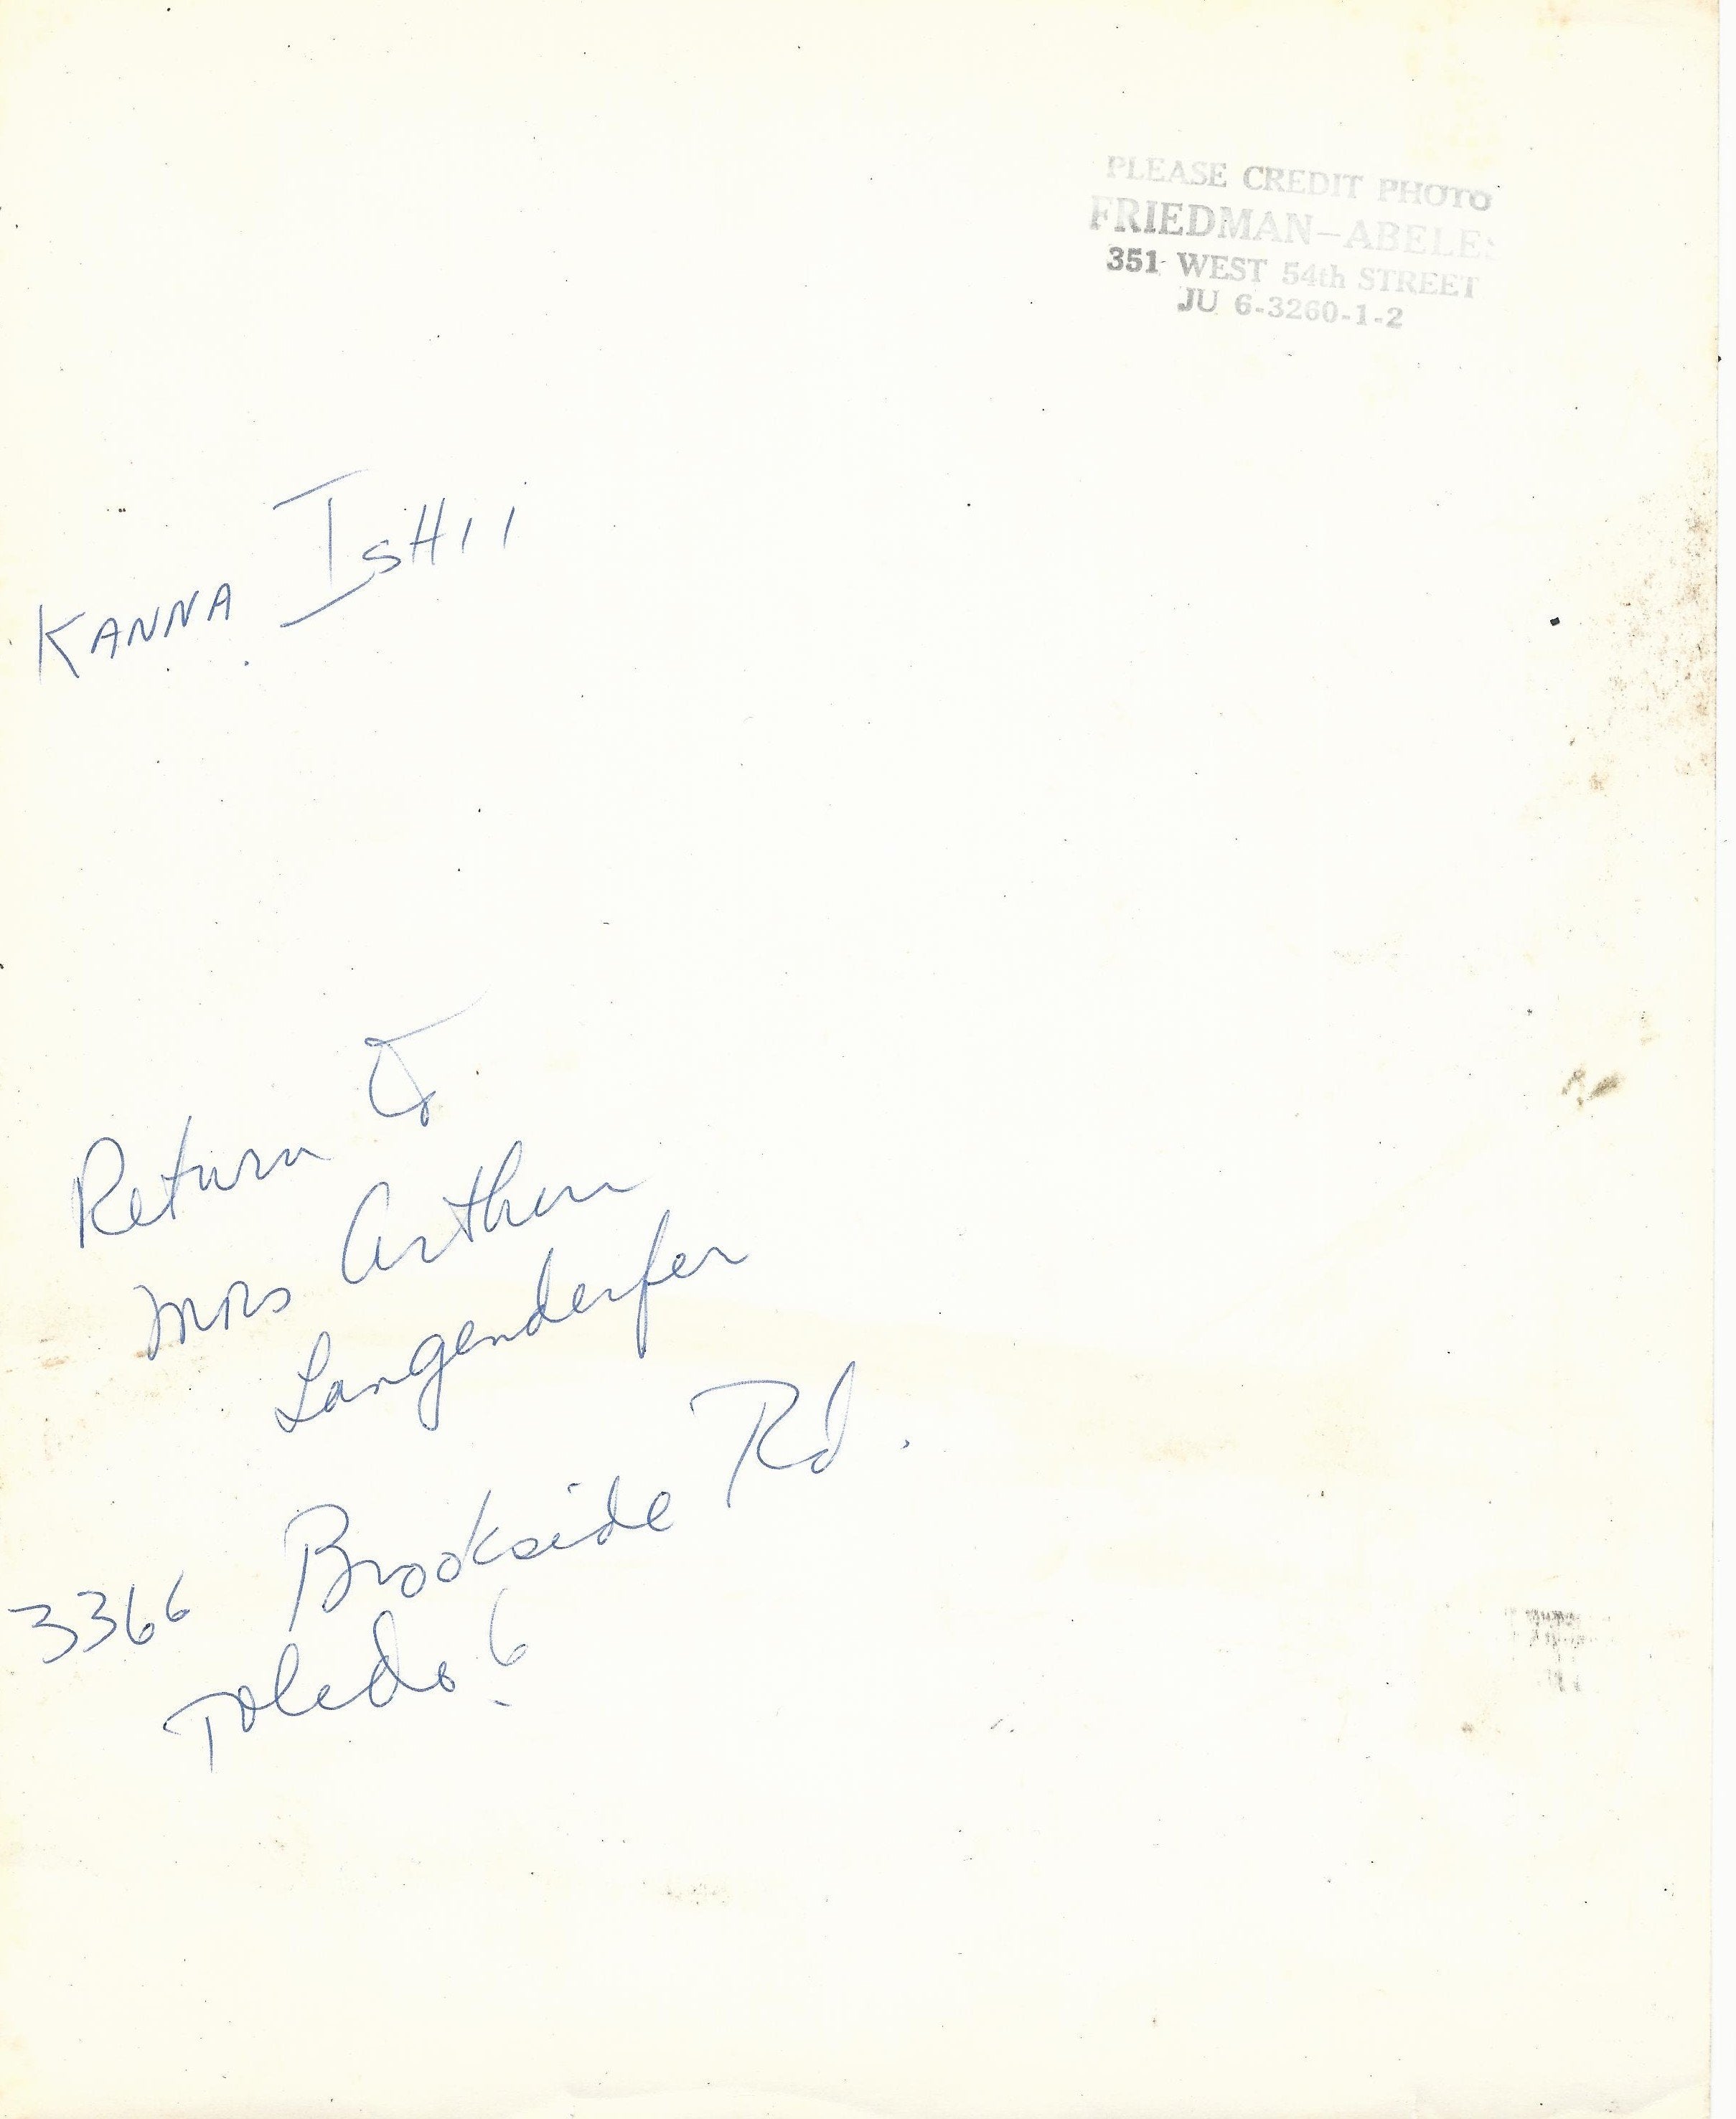 PLEASE CREDIT PHOTO
FRIEDMAN-ABELES
351 WEST 54th STREET
JU 6-3260-1-2
KANNA ISHII
Return to
Mrs Arthur
Langenderfer
3366 Brookside Rd.
Toledo 6